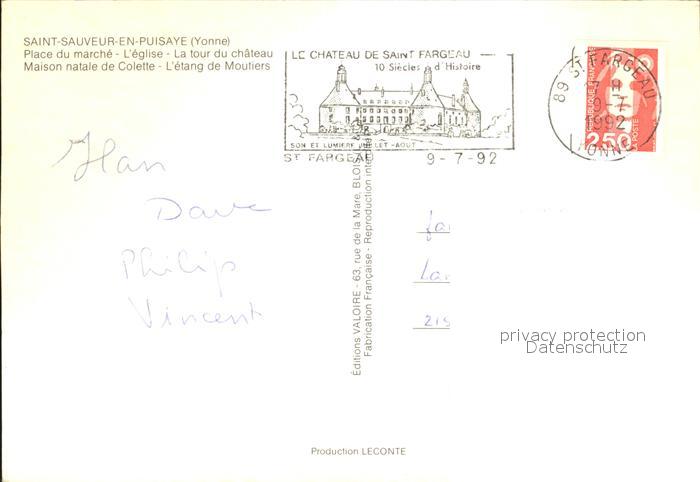 SAINT-SAUVEUR-EN-PUISAYE (Yonne)
Place du marché - L'église - La tour du château
Maison natale de Colette - L'étang de Moutiers
LE CHATEAU DE SAINT FARGEAU
10 Siècles d'Histoire
SON ET LUMIERE JUILLET-AOUT
ST FARGEAU 9-7-92
89 ST FARGEAU
1992
YONNE
2,50
LA POSTE
Dave
Philip
Vincent
Éditions VALOIRE - 63, rue de la Mare, BLOIS
Fabrication Française - Reproduction interdite
privacy protection
Datenschutz
Production LECONTE